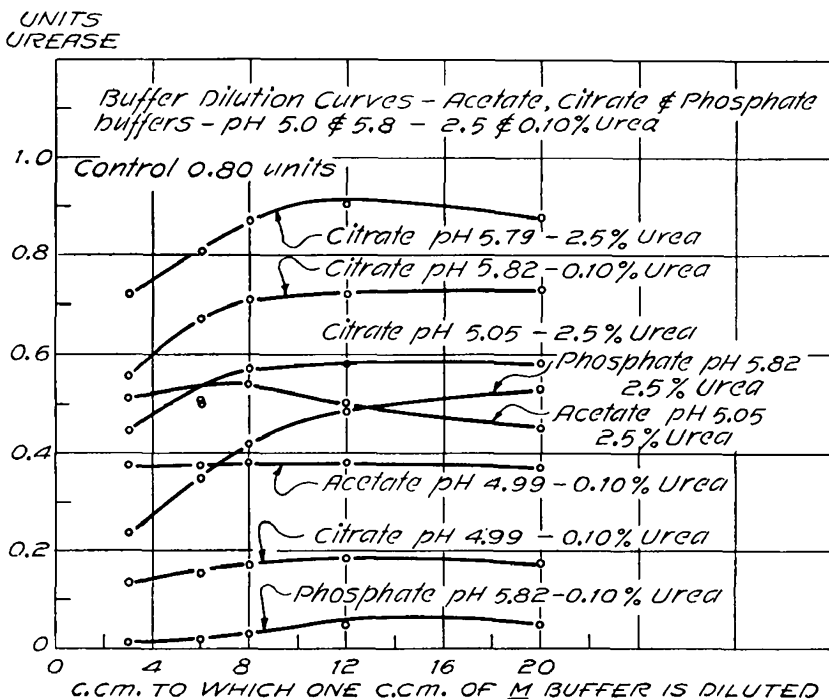 UNITS
UREASE
Buffer Dilution Curves - Acetate, Citrate & Phosphate
buffers - pH 5.0 & 5.8 - 2.5 & 0.10% Urea
1.0
Control 0.80 units
Citrate pH 5.79 - 2.5% Urea
0.8
Citrate pH 5.82 - 0.10% Urea
Citrate pH 5.05 - 2.5% Urea
0.6
Phosphate pH 5.82
2.5% Urea
Acetate pH 5.05
2.5% Urea
0.4
Acetate pH 4.99 - 0.10% Urea
Citrate pH 4.99 - 0.10% Urea
0.2
Phosphate pH 5.82 - 0.10% Urea
0
0 4 8 12 16 20
C.CM. TO WHICH ONE C.CM. OF M BUFFER IS DILUTED